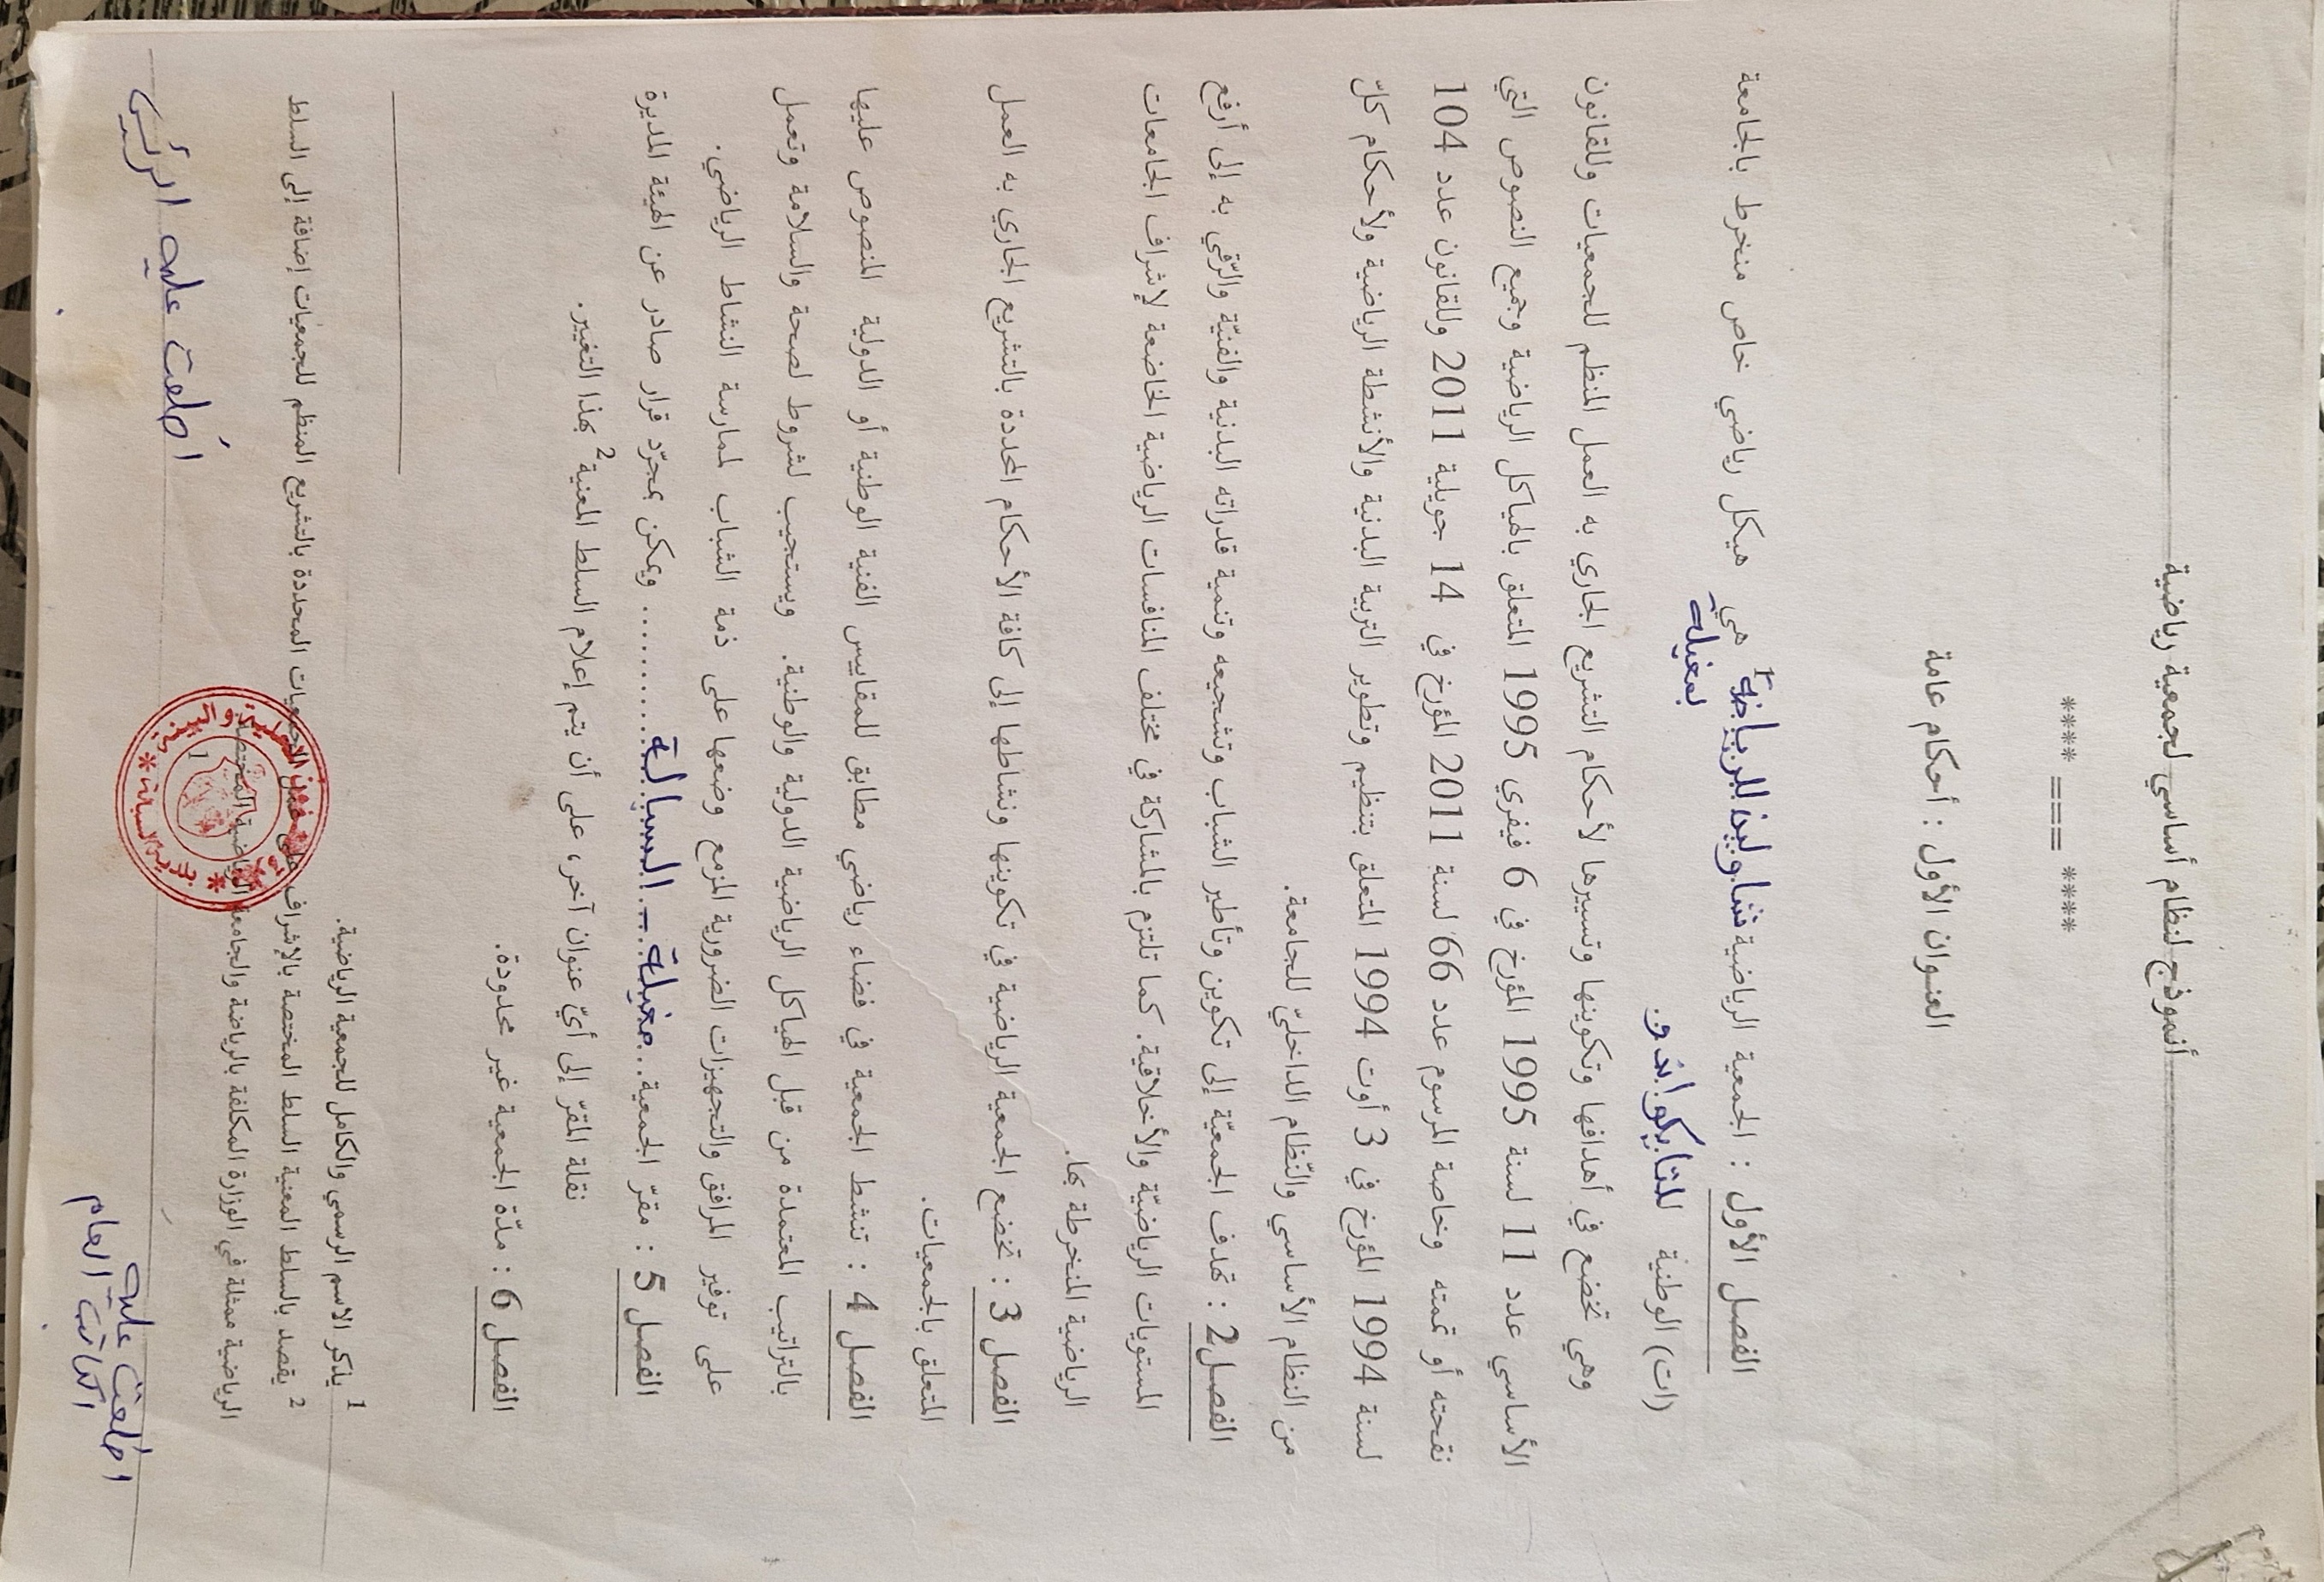 أنموذج لنظام أساسي لجمعية رياضية
**** === ****
العنوان الأول : أحكام عامة
الفصل الأول : الجمعية الرياضية شاولين للرياضة¹ هي هيكل رياضي خاص منخرط بالجامعة
بمغيلة
(ات) الوطنية للتايكواندو.
وهي تخضع في أهدافها وتكوينها وتسييرها لأحكام التشريع الجاري به العمل المنظم للجمعيات وللقانون
الأساسي عدد 11 لسنة 1995 المؤرخ في 6 فيفري 1995 المتعلق بالهياكل الرياضية وجميع النصوص التي
نقحته أو تممته وخاصة المرسوم عدد 66 لسنة 2011 المؤرخ في 14 جويلية 2011 وللقانون عدد 104
لسنة 1994 المؤرخ في 3 أوت 1994 المتعلق بتنظيم وتطوير التربية البدنية والأنشطة الرياضية ولأحكام كلّ
من النظام الأساسي والنّظام الداخليّ للجامعة.
الفصل 2 : تهدف الجمعيّة إلى تكوين وتأطير الشباب وتشجيعه وتنمية قدراته البدنية والفنيّة والرّقي به إلى أرفع
المستويات الرياضيّة والأخلاقية. كما تلتزم بالمشاركة في مختلف المنافسات الرياضية الخاضعة لإشراف الجامعات
الرياضية المنخرطة بها.
الفصل 3 : تخضع الجمعية الرياضية في تكوينها ونشاطها إلى كافة الأحكام المحددة بالتشريع الجاري به العمل
المتعلق بالجمعيات.
الفصل 4 : تنشط الجمعية في فضاء رياضي مطابق للمقاييس الفنية الوطنية أو الدولية المنصوص عليها
بالتراتيب المعتمدة من قبل الهياكل الرياضية الدولية والوطنية. ويستجيب لشروط لصحة والسلامة وتعمل
على توفير المرافق والتجهيزات الضرورية المزمع وضعها على ذمة الشباب لممارسة النشاط الرياضي.
الفصل 5 : مقرّ الجمعية..مغيلة - السبالة......... ويمكن بمجرّد قرار صادر عن الهيئة المديرة
نقلة المقرّ إلى أيّ عنوان آخر، على أن يتم إعلام السلط المعنية² بهذا التغيير.
الفصل 6 : مدّة الجمعية غير محدودة.
¹ يذكر الاسم الرسمي والكامل للجمعية الرياضية.
² يقصد بالسلط المعنية السلط المختصة بالإشراف على عمل الجمعيات المحددة بالتشريع المنظم للجمعيات إضافة إلى السلط
الرياضية ممثلة في الوزارة المكلفة بالرياضة والجامعة الرياضية المختصة.
1
المحلية والبيئة
بلدية السبالة
اطلعت عليه الرئيس
اطلعت عليه
الكاتب العام